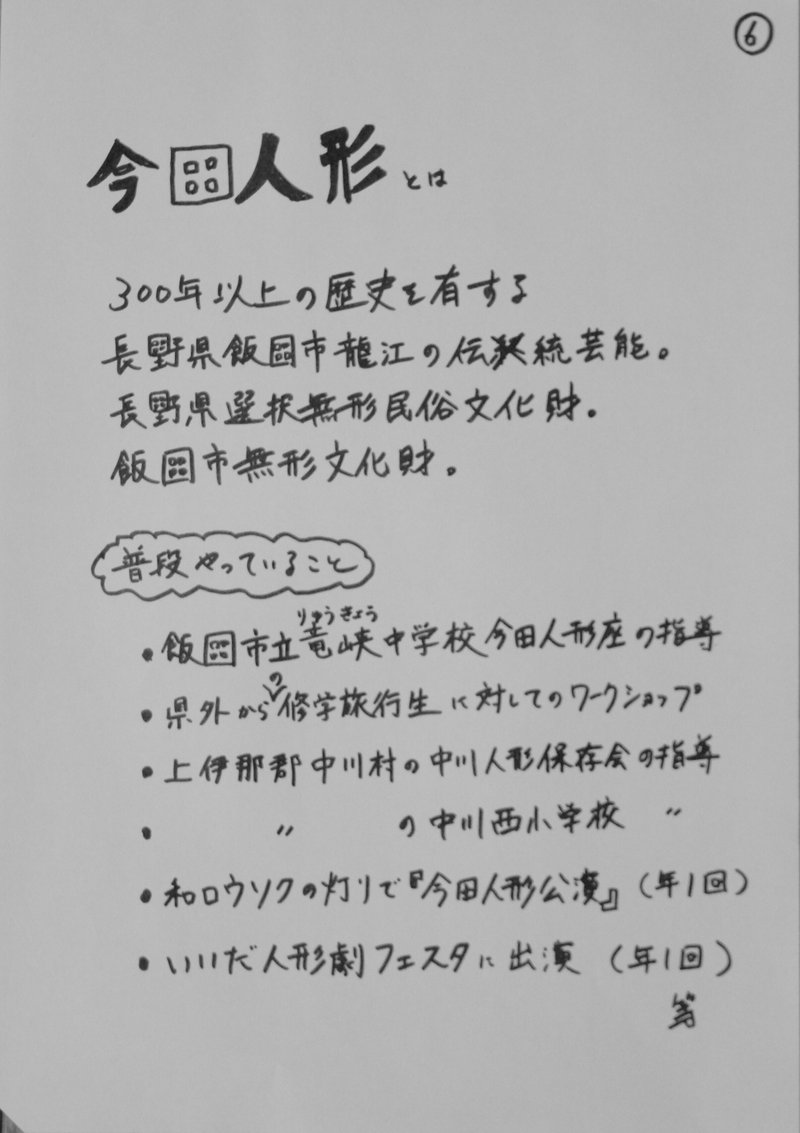 ⑥
今田人形とは
300年以上の歴史を有する
長野県飯田市龍江の伝統芸能。
長野県選択無形民俗文化財。
飯田市無形文化財。
普段やっていること
りゅうきょう
・飯田市立竜峡中学校今田人形座の指導
・県外からの修学旅行生に対してのワークショップ
・上伊那郡中川村の中川人形保存会の指導
・〃の中川西小学校〃
・和ロウソクの灯りで『今田人形公演』(年1回)
・いいだ人形劇フェスタに出演(年1回)
等